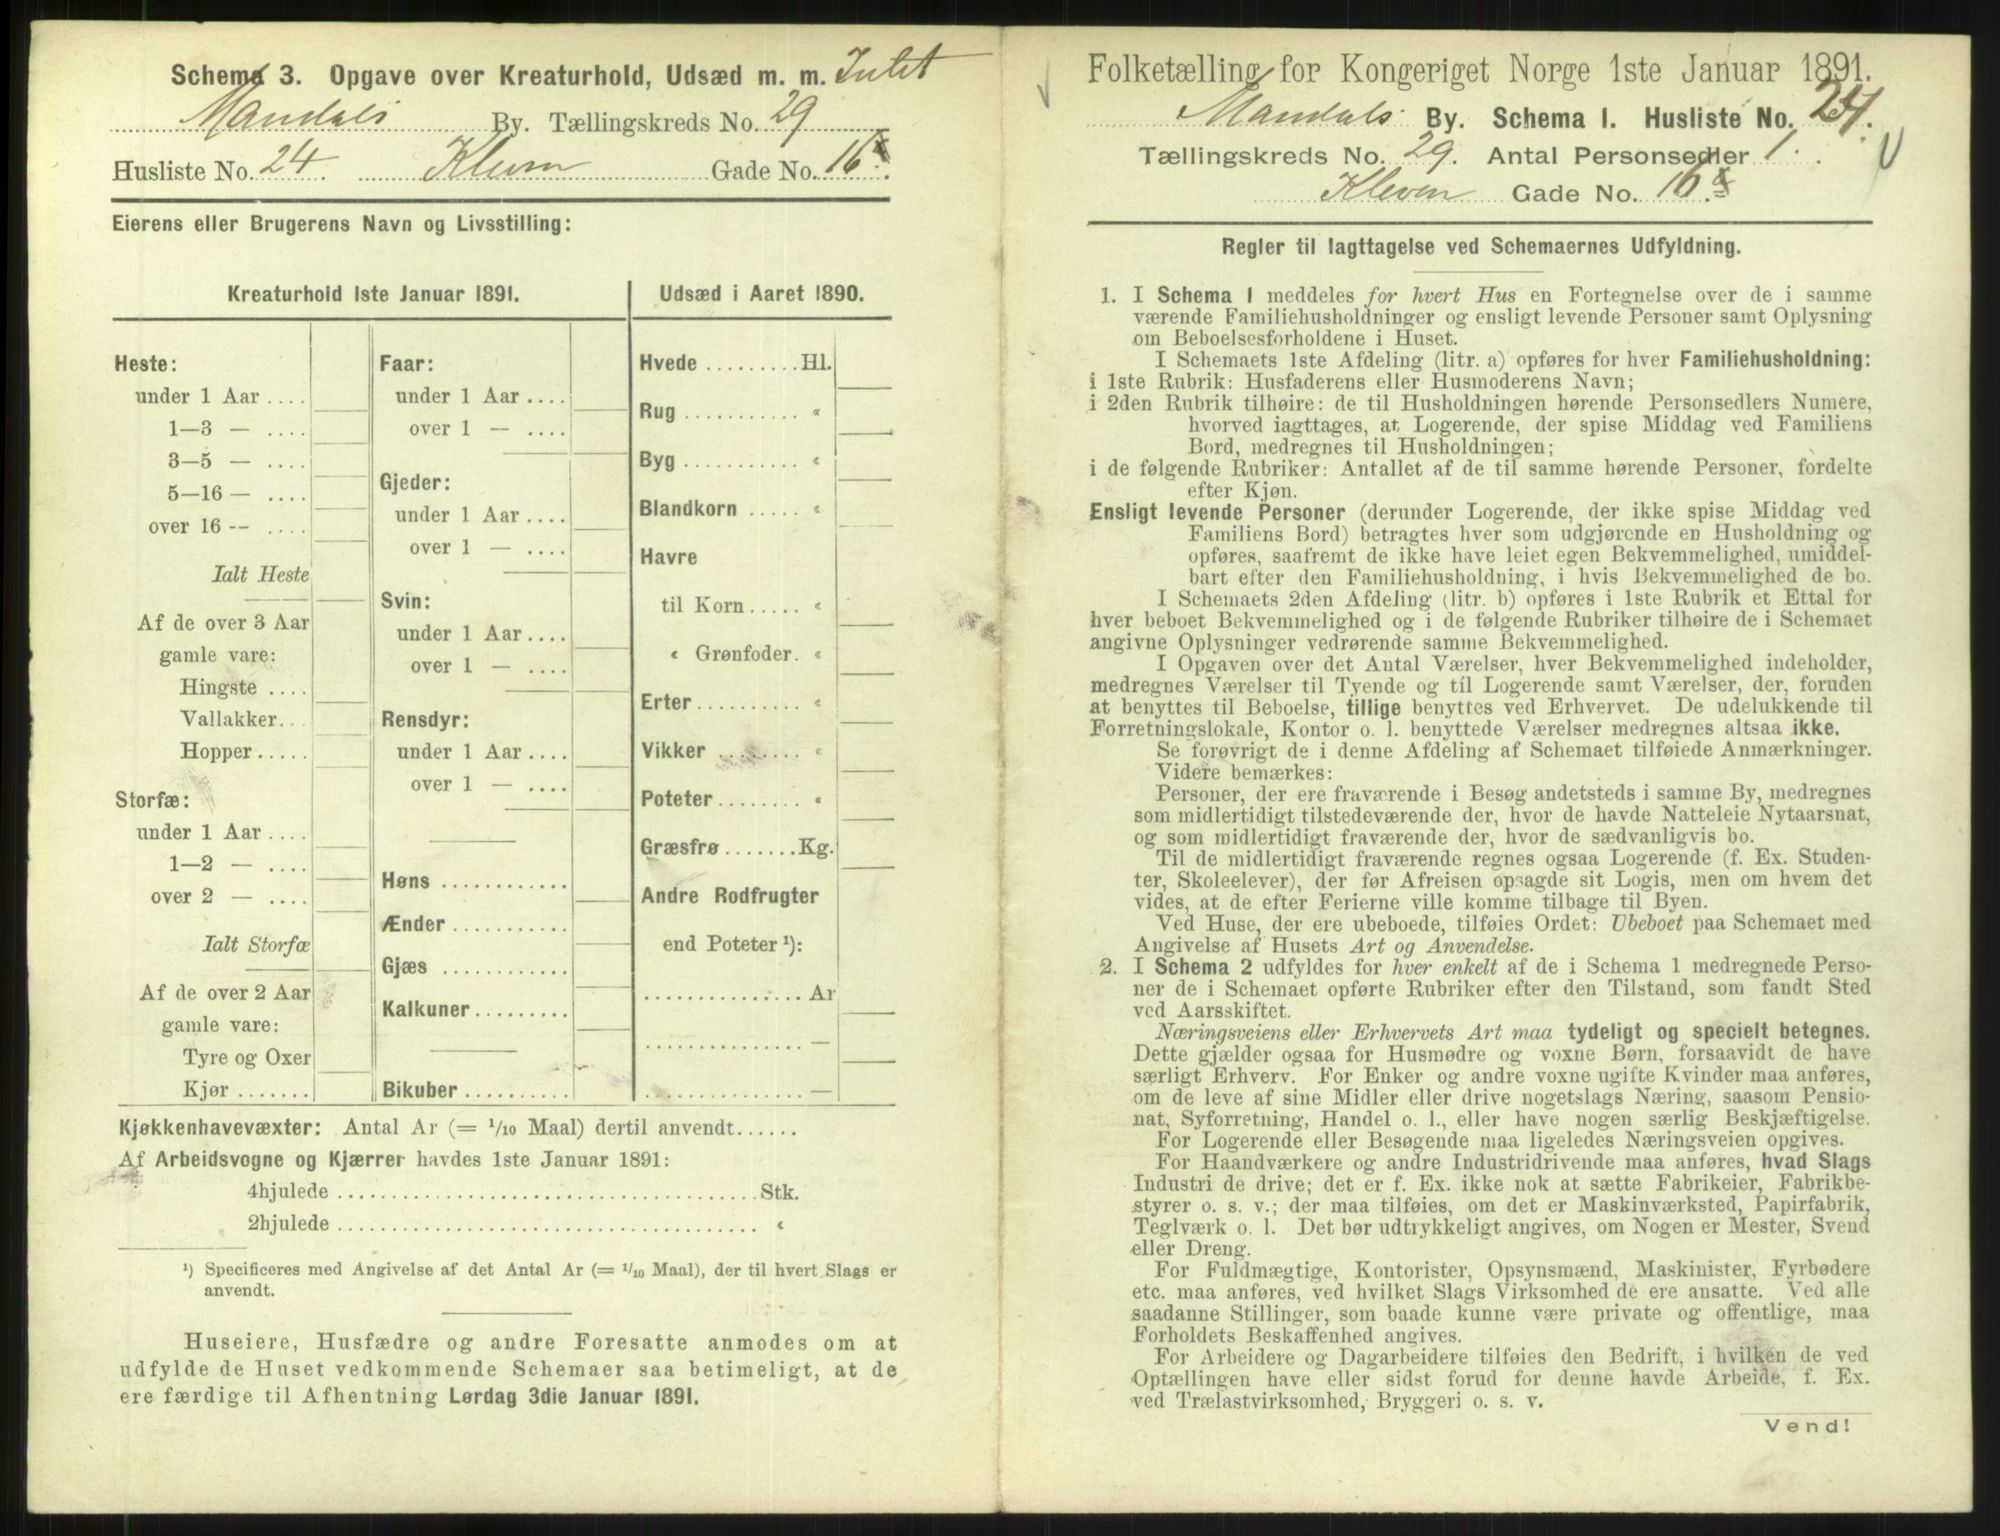 Schema 3. Opgave over Kreaturhold, Udsæd m. m. Intet
Mandals By. Tællingskreds No. 29
Husliste No. 24. Kleven Gade No. 16
Eierens eller Brugerens Navn og Livsstilling:
Kreaturhold 1ste Januar 1891.
Heste:
under 1 Aar ....
1—3 — ....
3—5 — ....
5—16 — ....
over 16 -- ....
Ialt Heste
Af de over 3 Aar
gamle vare:
Hingste ....
Vallakker...
Hopper.....
Storfæ:
under 1 Aar ....
1—2 — ....
over 2 — ....
Ialt Storfæ
Af de over 2 Aar
gamle vare:
Tyre og Oxer
Kjør.......
Faar:
under 1 Aar ....
over 1 — ....
Gjeder:
under 1 Aar ....
over 1 — ....
Svin:
under 1 Aar ....
over 1 — ....
Rensdyr:
under 1 Aar ....
over 1 — ....
Høns ............
Ænder ...........
Gjæs ............
Kalkuner.........
Bikuber ..........
Udsæd i Aaret 1890.
Hvede .........Hl.
Rug ........... "
Byg ........... "
Blandkorn ..... "
Havre
til Korn ..... "
" Grønfoder. "
Erter .......... "
Vikker ........ "
Poteter ........ "
Græsfrø .......Kg.
Andre Rodfrugter
end Poteter ¹):
............... Ar
............... —
............... —
Kjøkkenhavevæxter: Antal Ar (= 1/10 Maal) dertil anvendt......
Af Arbeidsvogne og Kjærrer havdes 1ste Januar 1891:
4hjulede ........................................ Stk.
2hjulede ........................................ "
¹) Specificeres med Angivelse af det Antal Ar (= 1/10 Maal), der til hvert Slags er
anvendt.
Huseiere, Husfædre og andre Foresatte anmodes om at
udfylde de Huset vedkommende Schemaer saa betimeligt, at de
ere færdige til Afhentning Lørdag 3die Januar 1891.
Folketælling for Kongeriget Norge 1ste Januar 1891.
Mandals By. Schema 1. Husliste No. 24.
Tællingskreds No. 29. Antal Personsedler 1.
Kleven Gade No. 16
Regler til Iagttagelse ved Schemaernes Udfyldning.
1. I Schema 1 meddeles for hvert Hus en Fortegnelse over de i samme
værende Familiehusholdninger og ensligt levende Personer samt Oplysning
om Beboelsesforholdene i Huset.
I Schemaets 1ste Afdeling (litr. a) opføres for hver Familiehusholdning:
i 1ste Rubrik: Husfaderens eller Husmoderens Navn;
i 2den Rubrik tilhøire: de til Husholdningen hørende Personsedlers Numere,
hvorved iagttages, at Logerende, der spise Middag ved Familiens
Bord, medregnes til Husholdningen;
i de følgende Rubriker: Antallet af de til samme hørende Personer, fordelte
efter Kjøn.
Ensligt levende Personer (derunder Logerende, der ikke spise Middag ved
Familiens Bord) betragtes hver som udgjørende en Husholdning og
opføres, saafremt de ikke have leiet egen Bekvemmelighed, umiddel-
bart efter den Familiehusholdning, i hvis Bekvemmelighed de bo.
I Schemaets 2den Afdeling (litr. b) opføres i 1ste Rubrik et Ettal for
hver beboet Bekvemmelighed og i de følgende Rubriker tilhøire de i Schemaet
angivne Oplysninger vedrørende samme Bekvemmelighed.
I Opgaven over det Antal Værelser, hver Bekvemmelighed indeholder,
medregnes Værelser til Tyende og til Logerende samt Værelser, der, foruden
at benyttes til Beboelse, tillige benyttes ved Erhvervet. De udelukkende til
Forretningslokale, Kontor o. l. benyttede Værelser medregnes altsaa ikke.
Se forøvrigt de i denne Afdeling af Schemaet tilføiede Anmærkninger.
Videre bemærkes:
Personer, der ere fraværende i Besøg andetsteds i samme By, medregnes
som midlertidigt tilstedeværende der, hvor de havde Natteleie Nytaarsnat,
og som midlertidigt fraværende der, hvor de sædvanligvis bo.
Til de midlertidigt fraværende regnes ogsaa Logerende (f. Ex. Studen-
ter, Skoleelever), der før Afreisen opsagde sit Logis, men om hvem det
vides, at de efter Ferierne ville komme tilbage til Byen.
Ved Huse, der ere ubeboede, tilføies Ordet: Ubeboet paa Schemaet med
Angivelse af Husets Art og Anvendelse.
2. I Schema 2 udfyldes for hver enkelt af de i Schema 1 medregnede Perso-
ner de i Schemaet opførte Rubriker efter den Tilstand, som fandt Sted
ved Aarsskiftet.
Næringsveiens eller Erhvervets Art maa tydeligt og specielt betegnes.
Dette gjælder ogsaa for Husmødre og voxne Børn, forsaavidt de have
særligt Erhverv. For Enker og andre voxne ugifte Kvinder maa anføres,
om de leve af sine Midler eller drive nogetslags Næring, saasom Pensio-
nat, Syforretning, Handel o. l., eller have nogen særlig Beskjæftigelse.
For Logerende eller Besøgende maa ligeledes Næringsveien opgives.
For Haandværkere og andre Industridrivende maa anføres, hvad Slags
Industri de drive; det er f. Ex. ikke nok at sætte Fabrikeier, Fabrikbe-
styrer o. s. v.; der maa tilføies, om det er Maskinværksted, Papirfabrik,
Teglværk o. l. Det bør udtrykkeligt angives, om Nogen er Mester, Svend
eller Dreng.
For Fuldmægtige, Kontorister, Opsynsmænd, Maskinister, Fyrbødere
etc. maa anføres, ved hvilket Slags Virksomhed de ere ansatte. Ved alle
saadanne Stillinger, som baade kunne være private og offentlige, maa
Forholdets Beskaffenhed angives.
For Arbeidere og Dagarbeidere tilføies den Bedrift, i hvilken de ved
Optællingen have eller sidst forud for denne havde Arbeide, f. Ex.
ved Trælastvirksomhed, Bryggeri o. s. v.
Vend!